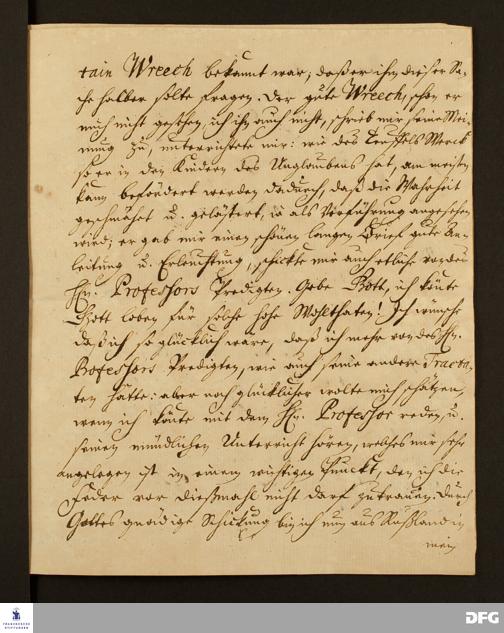 tain Wreech bekannt war, daß er ihn dieser Sa-
che halber solte fragen. Der gute Wreech, schon er
mich nicht gesehen, ich ihn auch nicht, schrieb mir seine Mei-
nung zu, unterrichtete mir: wie des Teufels Werck
so er in den Kindern des Unglaubens hat, am meisten
kann befördert werden dadurch, daß die Wahrheit
geschmähet u. gelästert, ja als Verführung angesehen
wird; er gab mir einen schönen langen Brief gute An-
leitung u. Erleuchtung, schickte mir auch etliche von des
Hn. Professors Predigten. Gebe Gott, ich könte
Gott loben für solche hohe Wohlthaten! Ich wünsche
daß ich so glücklich wäre, daß ich mehr von des Hn.
Professors Predigten, wie auch seine andere Tracta-
ten hätte: aber noch glücklicher wolte mich schätzen
wenn ich könte mit dem Hn. Professor reden, u.
seinen mündlichen Unterricht hören, welches mir sehr
angelegen ist in einem wichtigen Punckt, den ich die
Feder vor dießmahl nicht darf zutrauen. Durch
Gottes gnädige Schickung bin ich nun aus Rußland in
mein
FRANCKESCHE
STIFTUNGEN
DFG